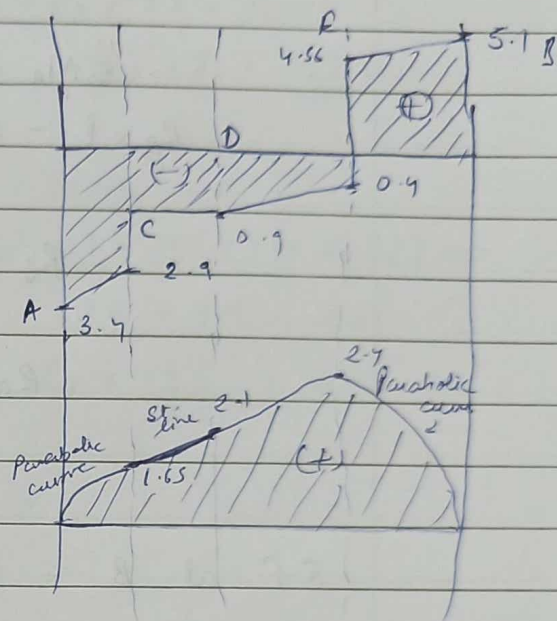 E
4.56
5.1 B
(+)
D
(-)
0.4
C
0.9
2.9
A
3.4
2.7
Parabolic
curve
St
line
2.1
Parabolic
curve
1.65
(+)